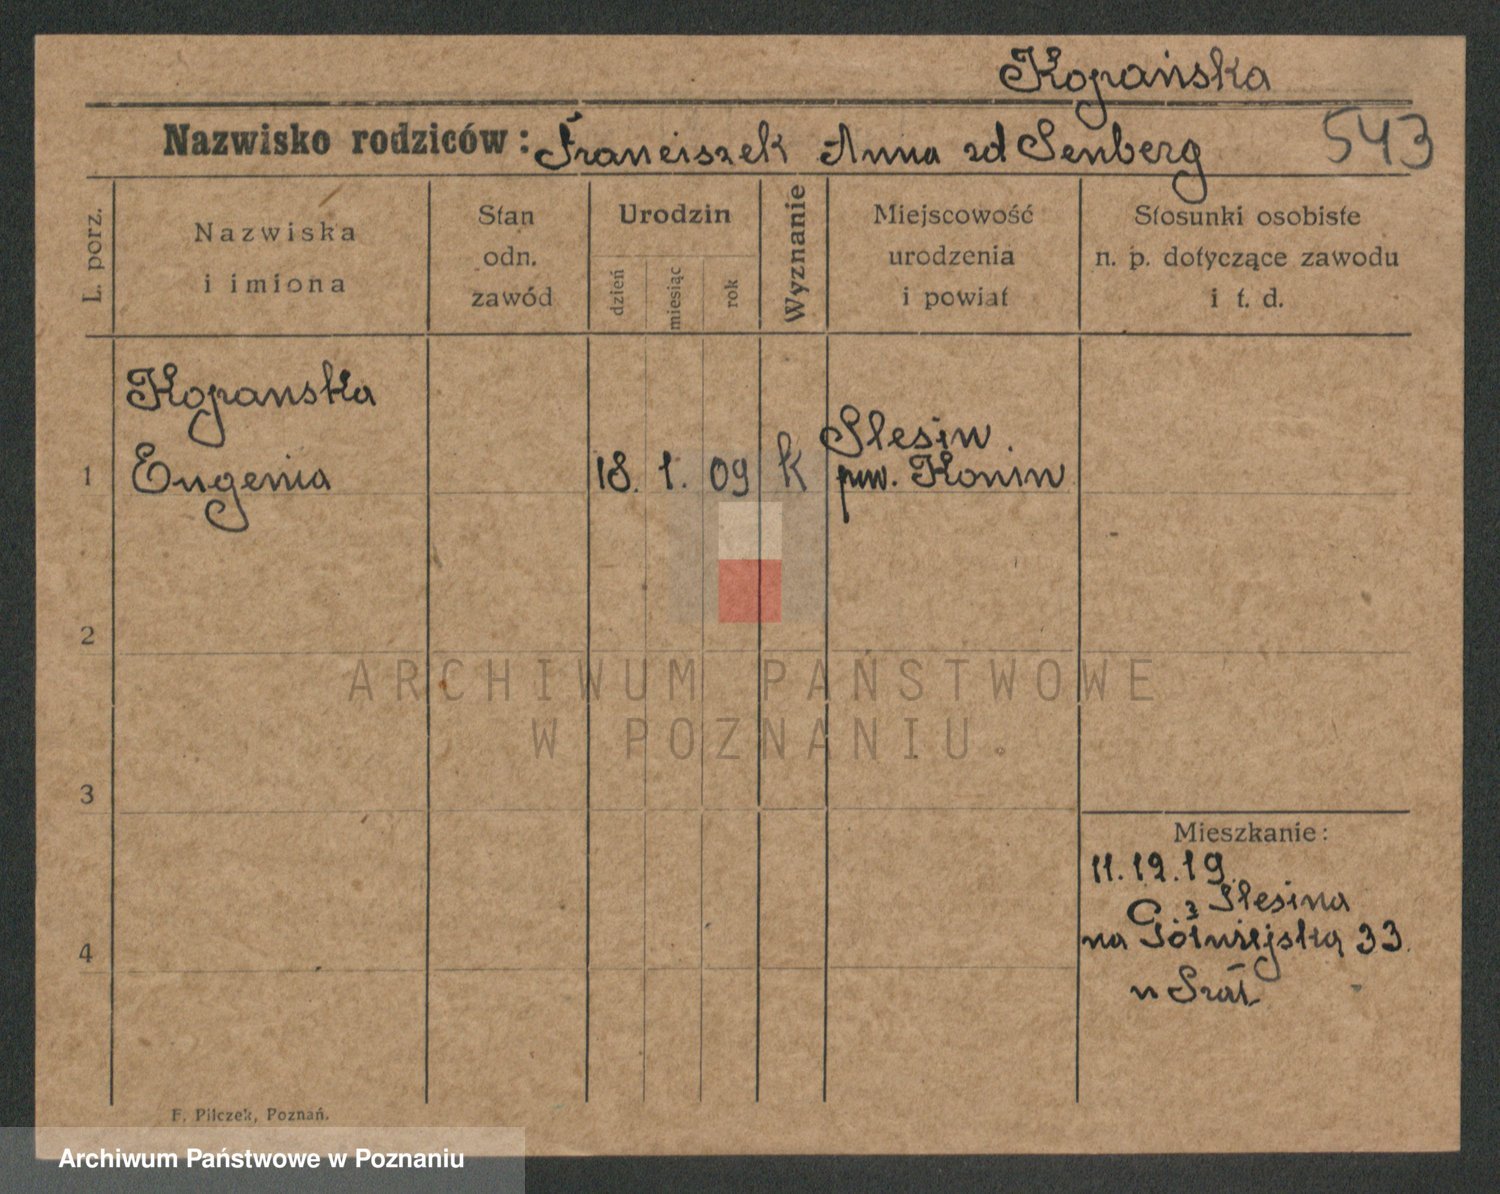 Kopańska
Nazwisko rodziców: Franciszek Anna zd Senberg 543
L. porz.
Nazwiska
i imiona
Stan
odn.
zawód
Urodzin
dzień
miesiąc
rok
Wyznanie
Miejscowość
urodzenia
i powiat
Stosunki osobiste
n. p. dotyczące zawodu
i t. d.
Kopanska
1 Eugenia 18. 1. 09 k Slesin.
pow. Konin
2
3
4
Mieszkanie:
11.12.19.
z Slesina
na 33.
F. Pilczek, Poznań.
ARCHIWUM PAŃSTWOWE
W POZNANIU.
Archiwum Państwowe w Poznaniu